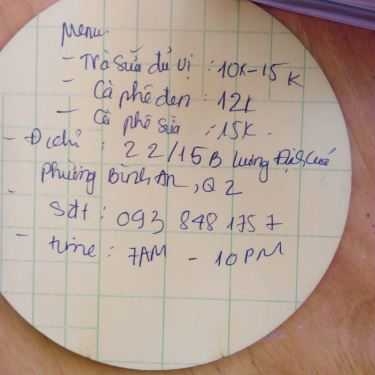 Menu
- Trà sữa đủ vị : 10k-15k
- Cà phê đen : 12k
- Cà phê sữa : 15k.
- Địchỉ : 22/15B Lương Định Của
phường Bình An, Q2
- Sdt : 093 848 1757
- time : 7AM - 10PM